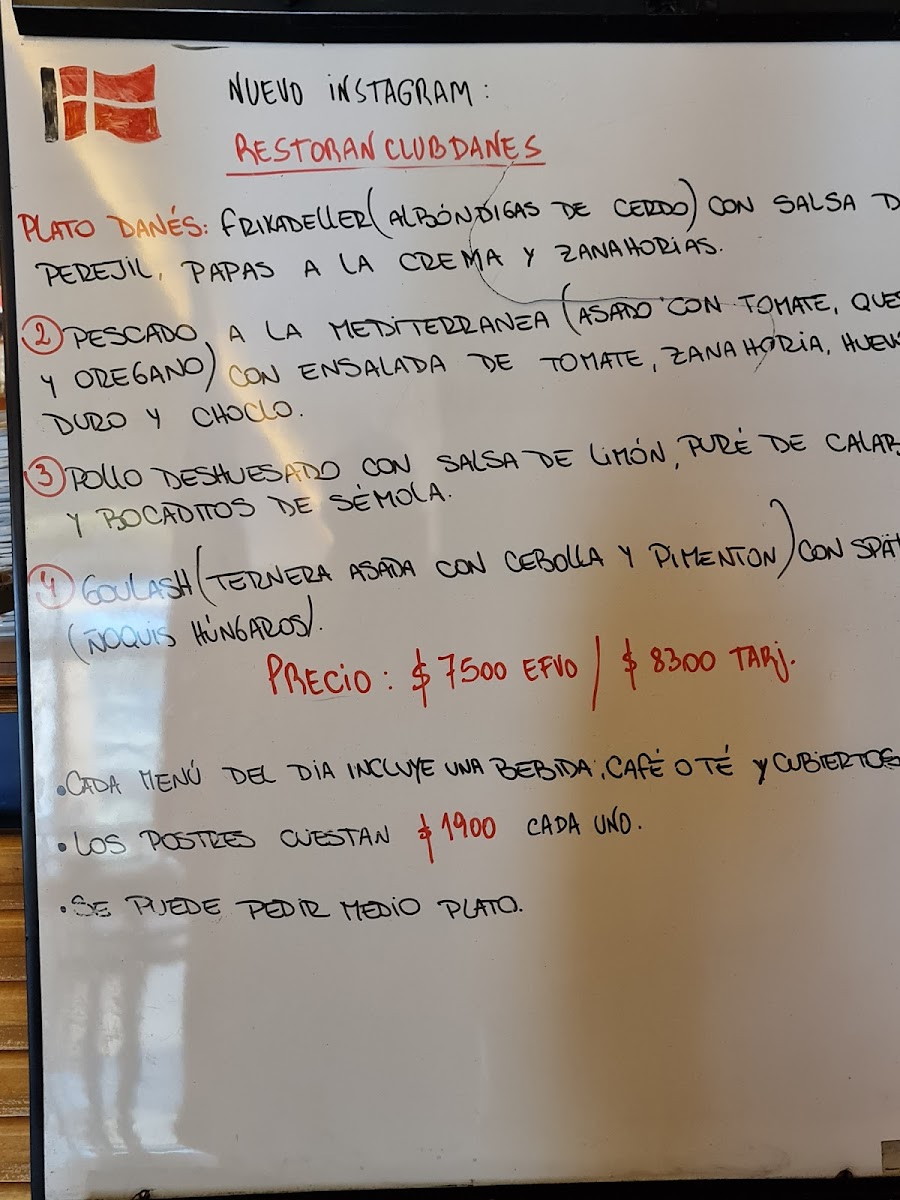 NUEVO INSTAGRAM:
RESTORAN CLUBDANES
PLATO DANÉS: FRIKADELLER (ALBÓNDIGAS DE CERDO) CON SALSA D
PEREJIL, PAPAS A LA CREMA Y ZANAHORIAS.
2 PESCADO A LA MEDITERRANEA (ASADO CON TOMATE, QUES
Y OREGANO) CON ENSALADA DE TOMATE, ZANAHORIA, HUEV
DURO Y CHOCLO.
3 POLLO DESHUESADO CON SALSA DE LIMÓN, PURÉ DE CALAB
Y BOCADITOS DE SÉMOLA.
4 GOULASH (TERNERA ASADA CON CEBOLLA Y PIMENTON) CON SPÄT
(ÑOQUIS HÚNGAROS).
PRECIO: $ 7500 EFVO / $ 8300 TARJ.
• CADA MENÚ DEL DIA INCLUYE UNA BEBIDA, CAFÉ O TÉ Y CUBIERTOS
• LOS POSTRES CUESTAN $ 1900 CADA UNO.
• SE PUEDE PEDIR MEDIO PLATO.